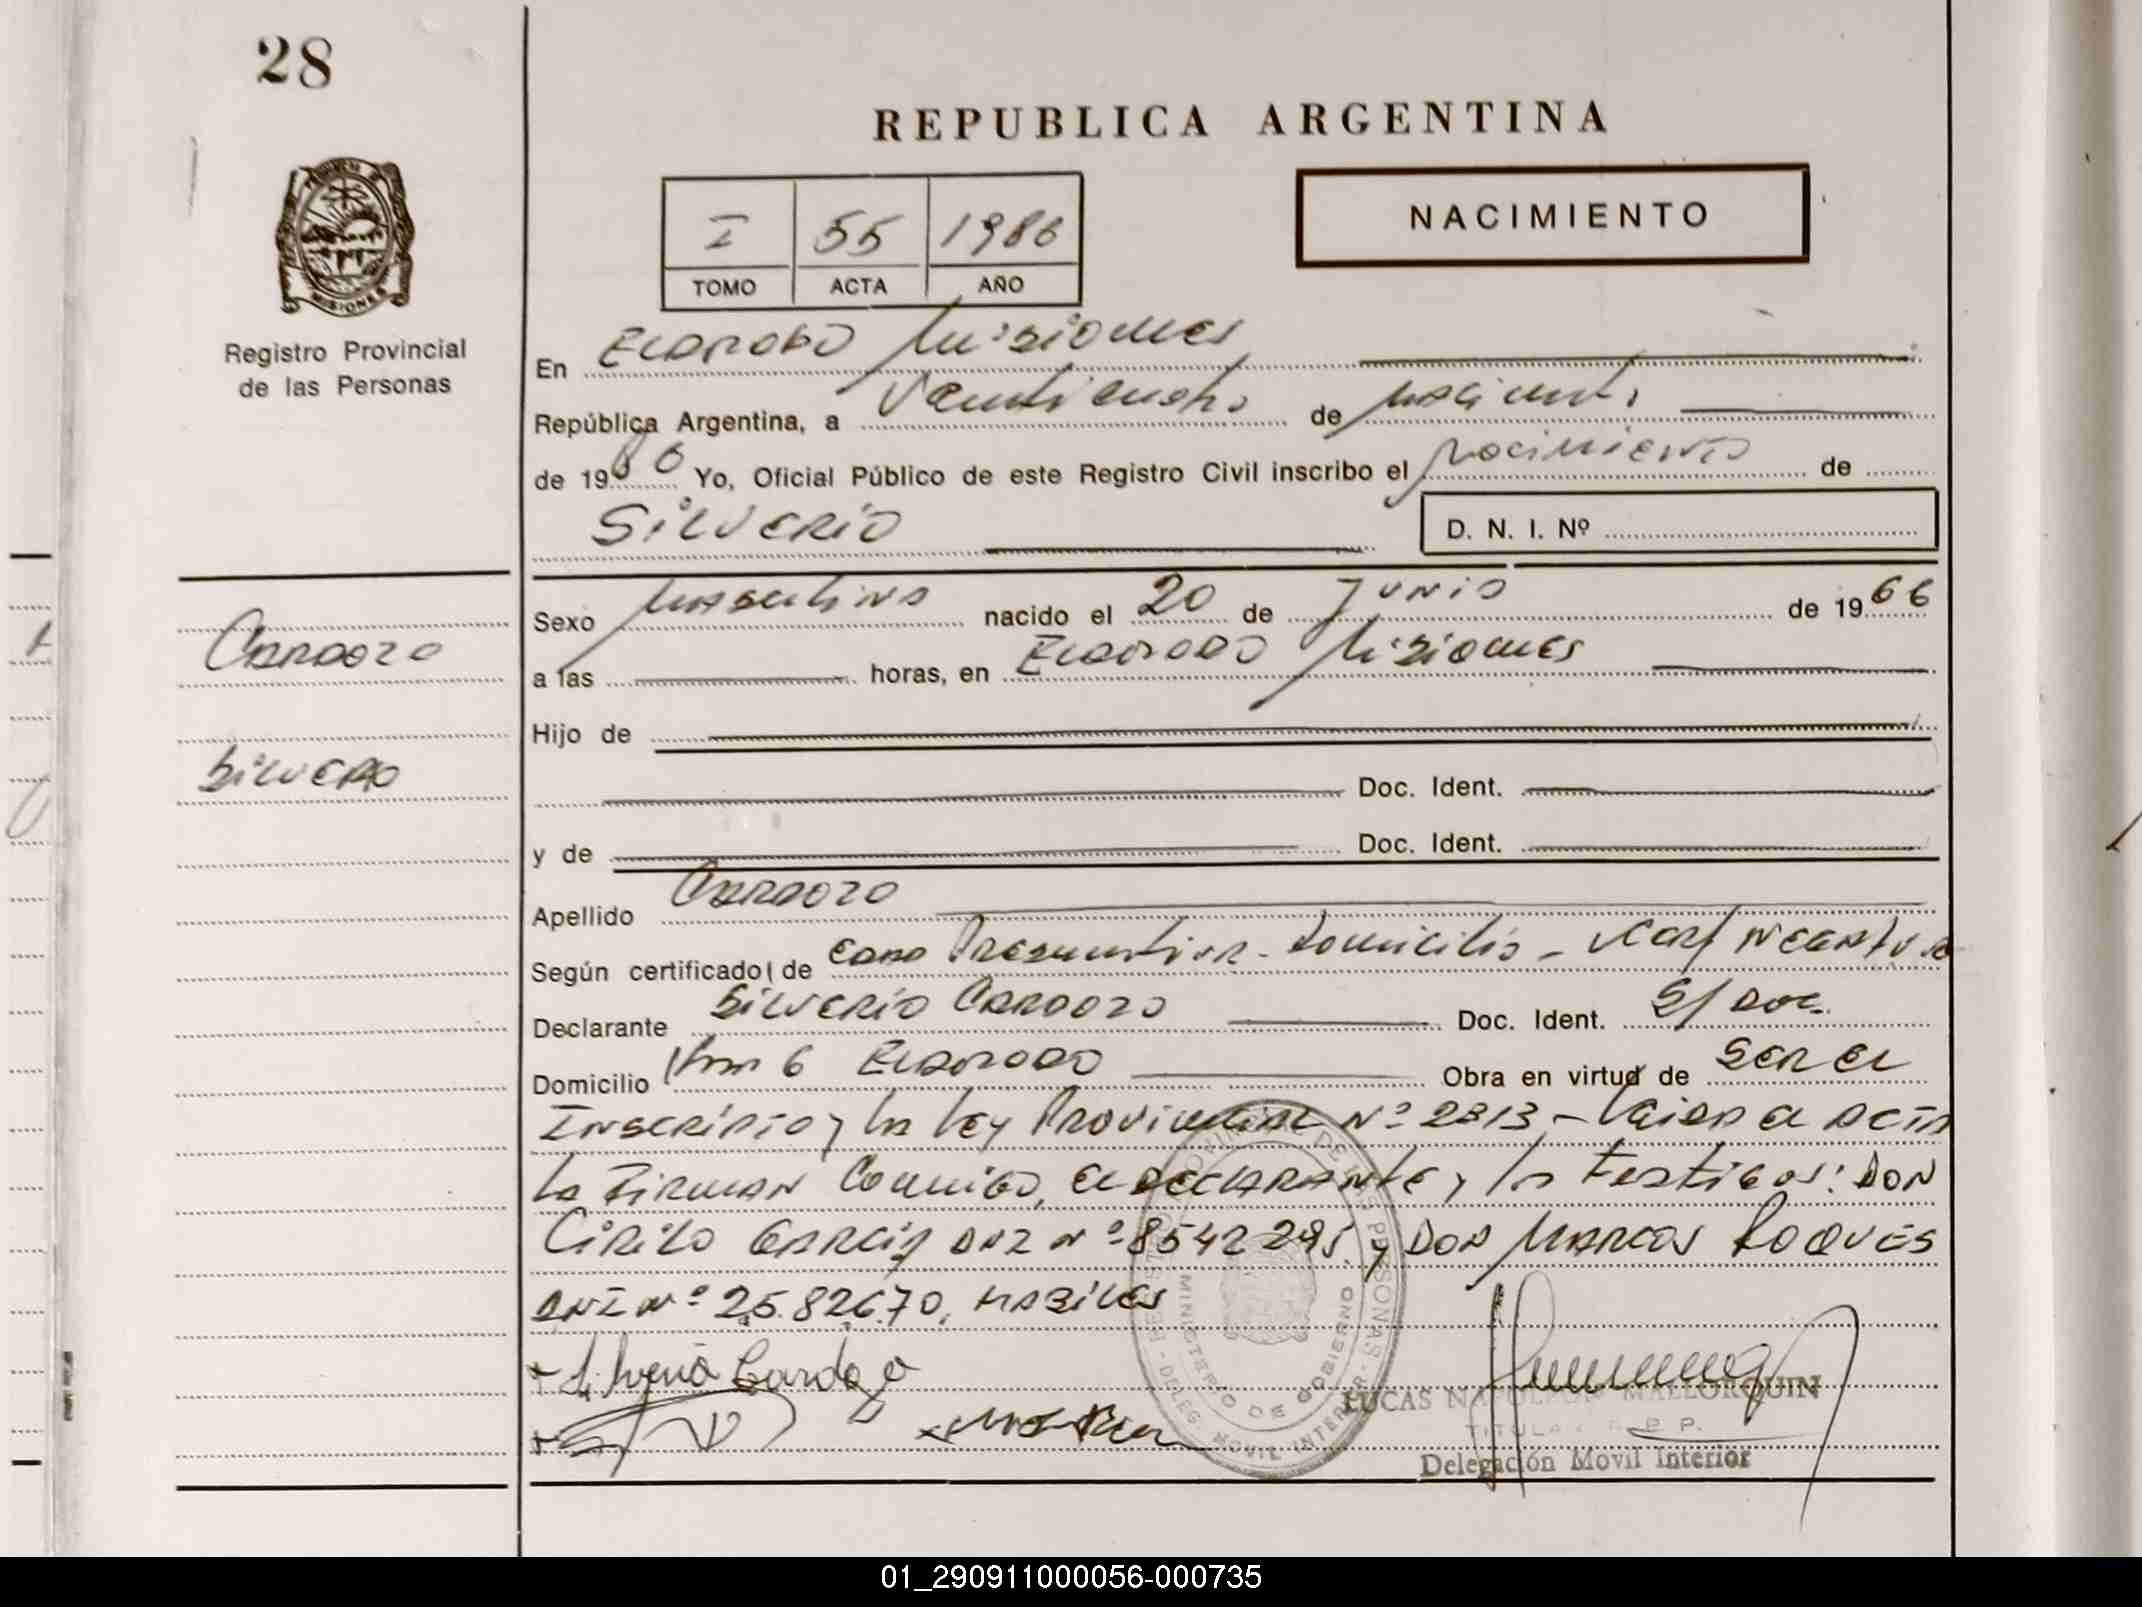 28
REPUBLICA ARGENTINA
NACIMIENTO
I 55 1986
TOMO ACTA AÑO
MISIONES
Registro Provincial
de las Personas
En Eldorado Misiones
República Argentina, a Veinticuatro de
de 1986 Yo, Oficial Público de este Registro Civil inscribo el nacimiento de
SILVERIO
D. N. I. Nº
Sexo Masculino nacido el 20 de Junio de 1966
a las horas, en Eldorado Misiones
Hijo de
Doc. Ident.
y de Doc. Ident.
Cardozo
Silverio
Apellido Cardozo
Según certificado de Edad Presuntiva - Domicilio -
Declarante Silverio Cardozo Doc. Ident. S/ Doc.
Domicilio Km 6 Eldorado Obra en virtud de Ser el
Inscripto y la Ley Provincial Nº 2313 - Leida el acta
la Firman Conmigo, el declarante y los Testigos: Don
Cirilo García DNI Nº 8542295 y Don Marcos Roques
DNI Nº 25.82670, Habiles
Silverio Cardozo
MINISTERIO DE GOBIERNO
DELEG. MOVIL INTERIOR
LUCAS NAPOLEON MALLORQUIN
TITULAR R. P. P.
Delegación Movil Interior
01_290911000056-000735